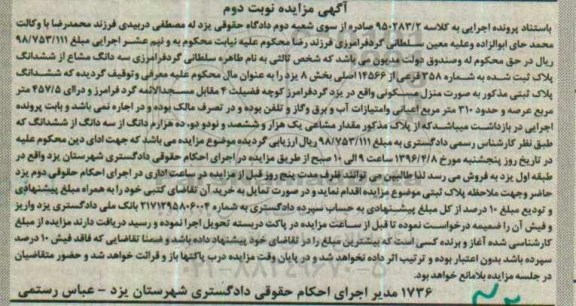 آگهی مزایده نوبت دوم
باستناد پرونده اجرایی به کلاسه ۹۵۰۲۸۳/۲ صادره از سوی شعبه دوم دادگاه حقوقی یزد له مصطفی دربیدی فرزند محمدرضا با وکالت
محمد حای ابوالزاده وعلیه معین سلطانی گردفرامرزی فرزند رضا محکوم علیه نیابت محکوم به و نیم عشر اجرایی مبلغ ۹۸/۷۵۳/۱۱۱
ریال در حق محکوم له وصندوق دولت مدیون می باشد که شخص ثالثی به نام طاهره سلطانی گردفرامرزی سه دانگ مشاع از ششدانگ
پلاک ثبت شده به شماره ۳۵۸ فرعی از ۱۴۵۶۶ اصلی بخش ۸ یزد را به عنوان مال محکوم علیه معرفی وتوقیف گردیده که ششدانگ
پلاک ثبتی مذکور به صورت منزل مسکونی واقع در یزد گردفرامرز کوچه فضیلت ۴ مقابل مسجدالائمه گرد فرامرز و درای ۴۵۷/۵ متر
مربع عرصه و حدود ۳۱۰ متر مربع اعیانی وامتیازات آب و برق وگاز و تلفن بوده و در تصرف مالک بوده و در اجاره نمی باشد و بابت پرونده
اجرایی در بازداشت میباشدکه از پلاک مذکور مقدار مشاعی یک هزار و ششصد و نودو دو، ده هزارم دانگ از سه دانگ از ششدانگ که
طبق نظر کارشناس رسمی دادگستری به مبلغ ۹۸/۷۵۳/۱۱۱ ریال ارزیابی گردیده موضوع مزایده می باشد که جهت ادای دین محکوم علیه
در تاریخ روز پنجشنبه مورخ ۱۳۹۶/۴/۸ ساعت ۹ الی ۱۰ صبح از طریق مزایده در اجرای احکام حقوقی دادگستری شهرستان یزد واقع در
طبقه اول یزد به فروش می رسد لذا طالبین می توانند ظرف مدت پنج روز قبل از مزایده در ساعت اداری در اجرای احکام حقوقی دوم یزد
حاضر وجهت ملاحظه پلاک ثبتی موضوع مزایده اقدام نماید و در صورت تمایل به خرید آن تقاضای کتبی خود را به همراه مبلغ پیشنهادی
و تودیع مبلغ ۱۰ درصد از کل مبلغ پیشنهادی به حساب سپرده دادگستری به شماره ۲۱۷۱۲۹۵۸۰۶۰۰۴ بانک ملی دادگستری یزد واریز
و فیش آن را ضمیمه درخواست نموده تا قبل از ساعت مزایده در پاکت دربسته تحویل اجرا نموده و رسید دریافت دارند مزایده از مبلغ
کارشناسی شده آغاز و برنده کسی است که بیشترین مبلغ را در تقاضای خود پیشنهاد داده باشد و ضمنا تقاضایی که فاقد فیش ۱۰ درصد
سپرده باشد بدون اعتبار بوده و ترتیب اثر داده نخواهد شد و در پایان وقت مزایده درب پاکتها باز و قرائت خواهد شد و حضور متقاضیان
در جلسه مزایده بلامانع خواهد بود.
۱۷۳۶ مدیر اجرای احکام حقوقی دادگستری شهرستان یزد - عباس رستمی